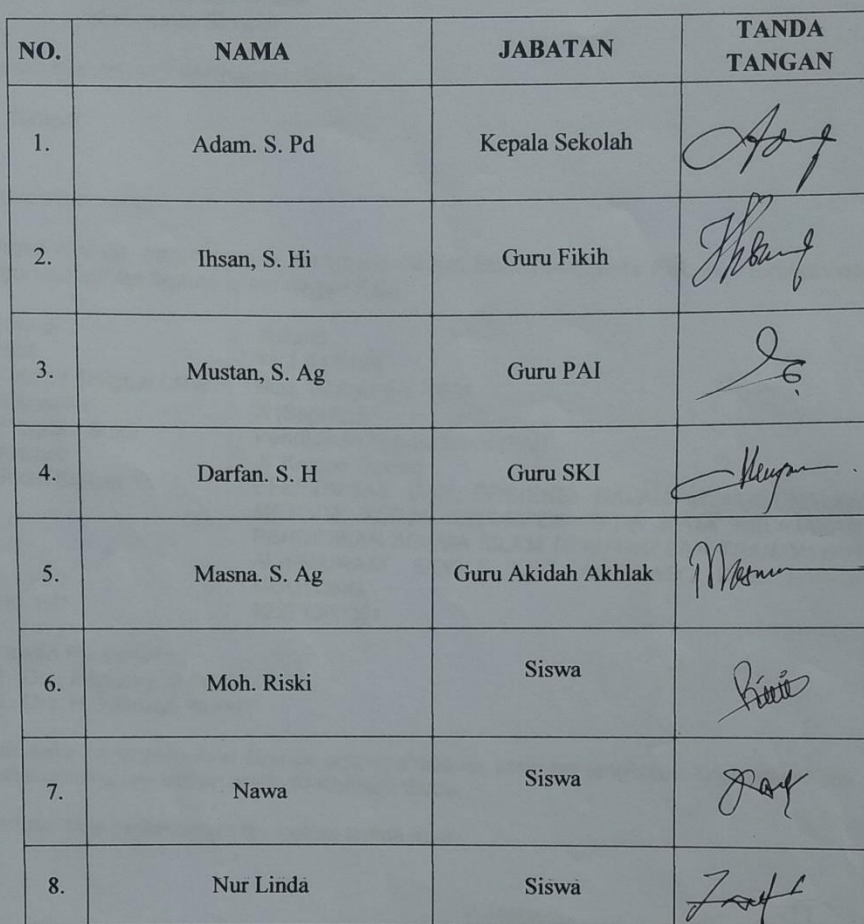 NO. NAMA JABATAN TANDA TANGAN
1. Adam. S. Pd Kepala Sekolah
2. Ihsan, S. Hi Guru Fikih
3. Mustan, S. Ag Guru PAI
4. Darfan. S. H Guru SKI
5. Masna. S. Ag Guru Akidah Akhlak
6. Moh. Riski Siswa
7. Nawa Siswa
8. Nur Linda Siswa